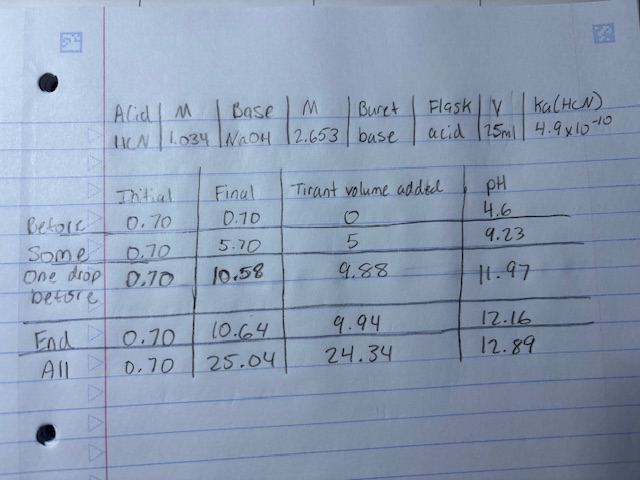 Acid | M | Base | M | Buret | Flask | V | Ka(HCN)
HCN | 1.034 | NaOH | 2.653 | base | acid | 25ml | 4.9x10⁻¹⁰
Initial | Final | Tirant volume added | pH
Before | 0.70 | 0.70 | 0 | 4.6
Some | 0.70 | 5.70 | 5 | 9.23
One drop before | 0.70 | 10.58 | 9.88 | 11.97
End | 0.70 | 10.64 | 9.94 | 12.16
All | 0.70 | 25.04 | 24.34 | 12.89